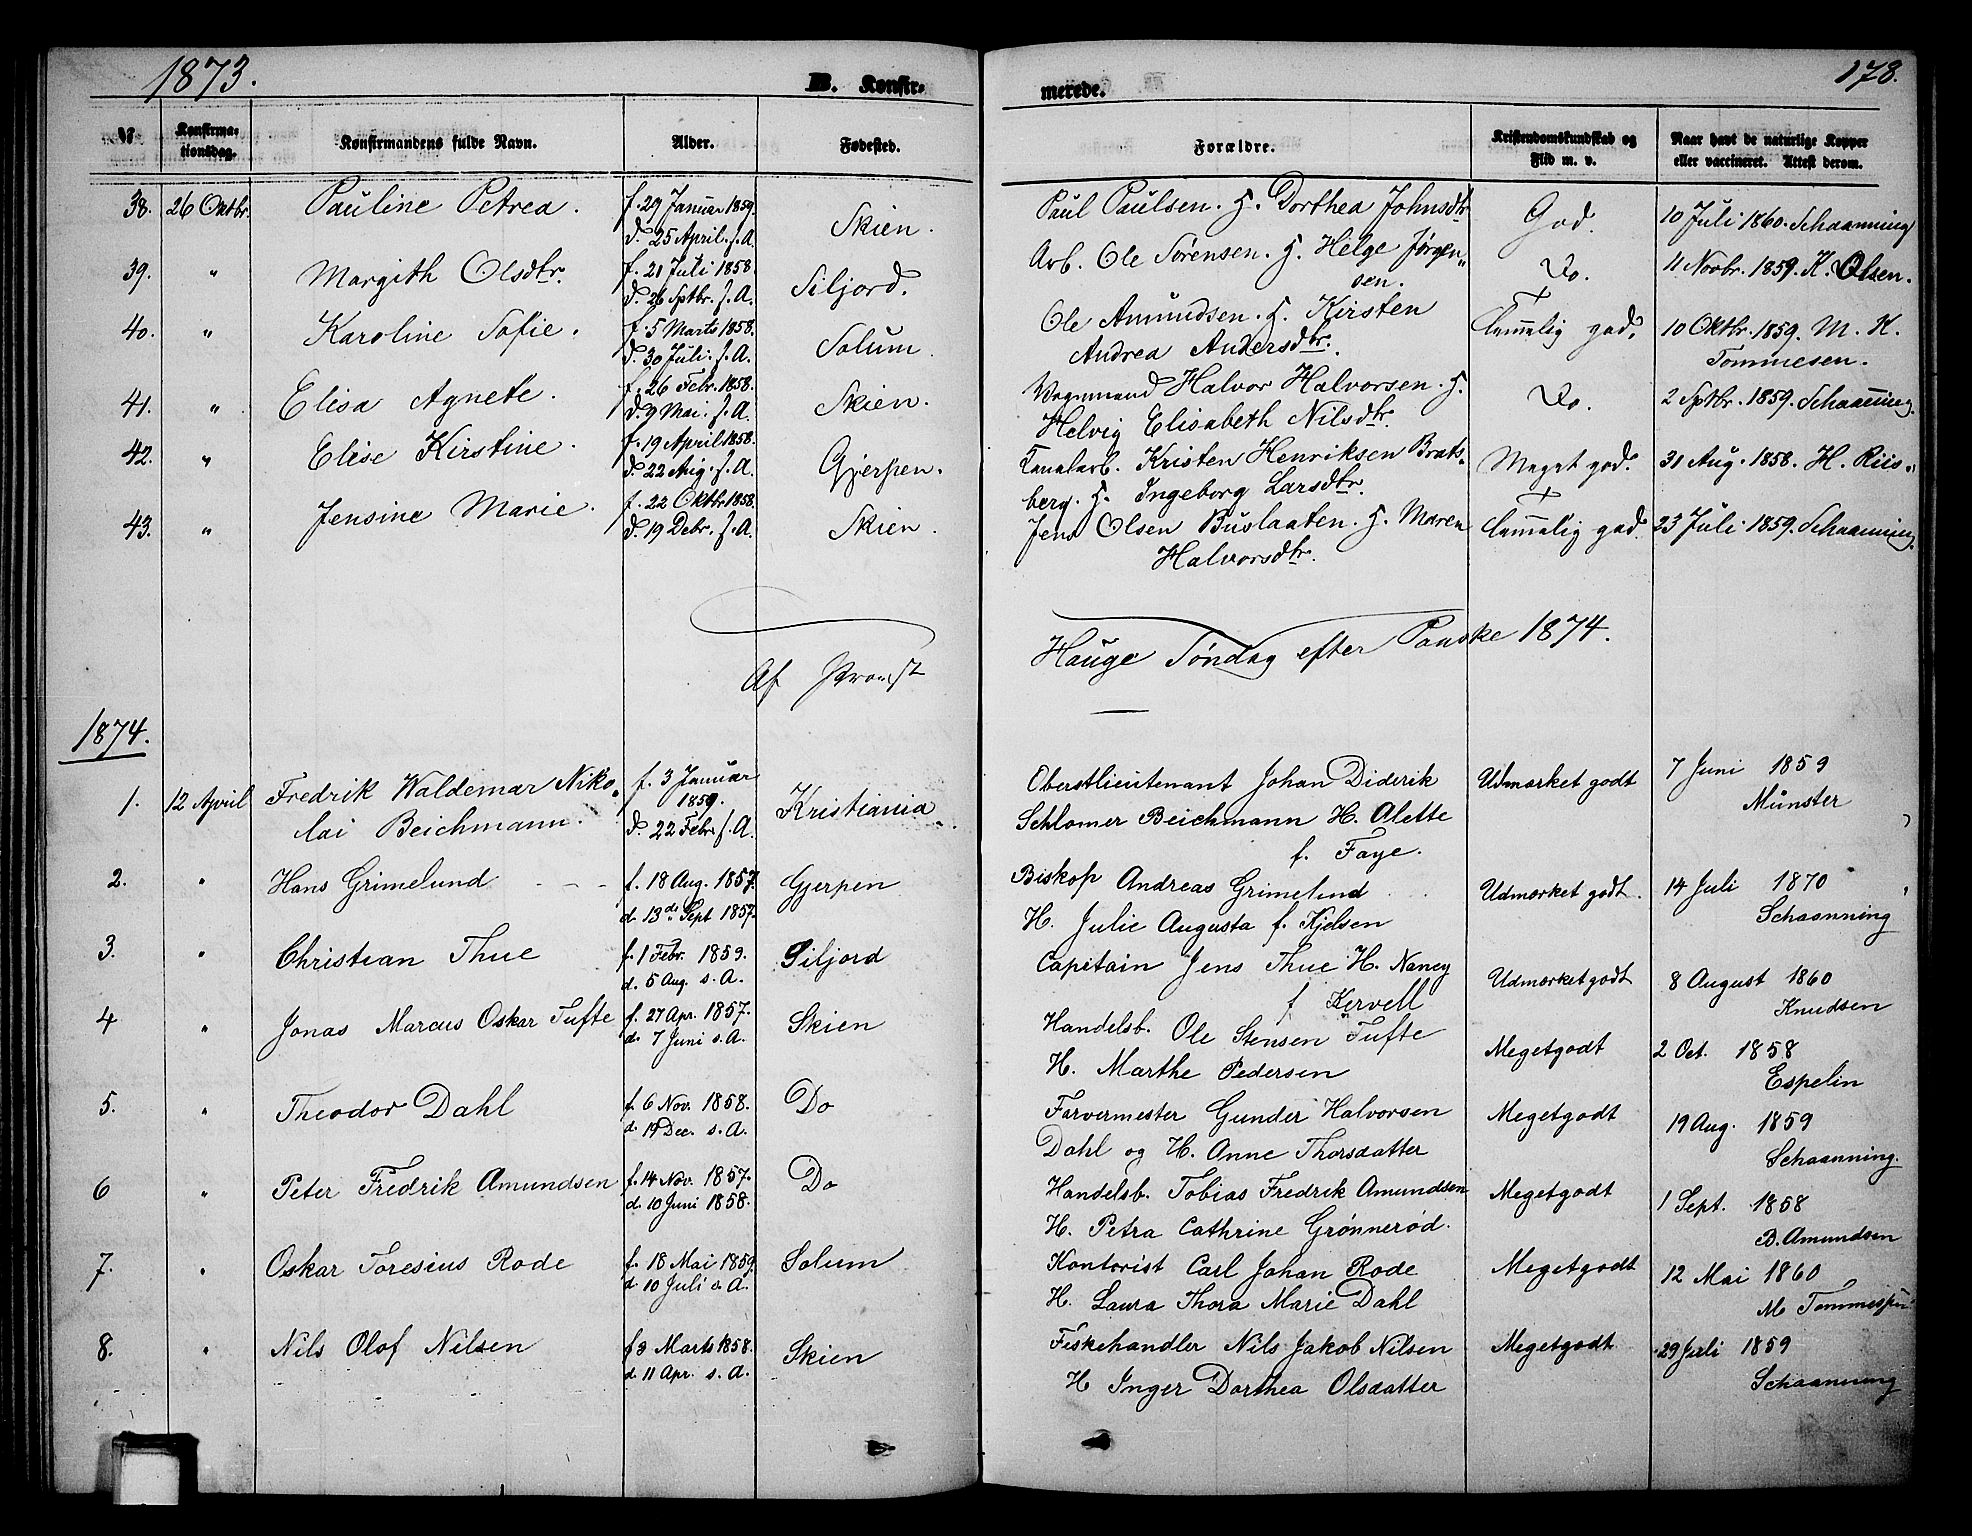 1873.
B. Konfir-
merede.
178.
N
Konfirma-
tionsdag.
Konfirmandens fulde Navn.
Alder.
Fødested.
Forældre.
Kristendomskundskab og
Flid m. v.
Naar havt de naturlige Kopper
eller vaccineret. Attest derom.
38. 26 Oktbr. Pauline Petrea. f. 29 Januar 1859. Skien. Paul Paulsen. H. Dorthea Johnsdtr God. 10 Juli 1860. Schaanning
d. 25 April. s. A.
39. " Margith Olsdtr. f. 21 Juli 1858. Siljord. Arb. Ole Sørensen. H. Helge Jørgen- Do. 11 Novbr. 1859. K. Olsen.
d. 26 Sptbr. s. A. sen.
40. " Karoline Sofie. f. 5 Marts 1858. Solum. Ole Amundsen. H. Kirsten Temmelig god. 10 Oktbr. 1859. M. K.
d. 30 Juli. s. A. Andrea Andersdtr. Tommesen.
41. " Elisa Agnete. f. 26 Febr. 1858. Skien. Vognmand Halvor Halvorsen. H. Do. 2 Sptbr. 1859. Schaanning.
d. 9 Mai. s. A. Helvig Elisabeth Nilsdtr.
42. " Elise Kirstine. f. 19 April 1858. Gjerpen. Kanalarb. Kristen Henriksen Brats- Meget god. 31 Aug. 1858. H. Riis.
d. 22 Aug. s. A. berg. H. Ingeborg Larsdtr.
43. " Jensine Marie. f. 22 Oktbr 1858. Skien. Jens Olsen Buslaaten. H. Maren Temmelig god. 23 Juli 1859. Schaanning.
d. 19 Debr. s. A. Halvorsdtr.
Af Provst Hauge Søndag efter Paaske 1874.
1874.
1. 12 April Fredrik Waldemar Niko- f. 3 Januar Kristiania Oberstlieutenant Johan Diderik Udmærket godt 7 Juni 1859
1859.
lai Beichmann. d. 22 Febr. s. A. Schlomer Beichmann H. Alette Münster
f. Faye.
2. " Hans Grimelund f. 18 Aug. 1857 Gjerpen Biskop Andreas Grimelund Udmærket godt. 14 Juli 1870
d. 13de Sept 1857. H. Julie Augusta f. Kjelsen Schaanning
3. " Christian Thue f. 1 Febr. 1859. Siljord Capitain Jens Thue H. Nancy Udmærket godt 8 August 1860
d. 5 Aug. s. A. f Kervell Knudsen
4 " Jonas Marcus Oskar Tufte f. 27 Apr. 1857. Skien Handelsb. Ole Stensen Tufte Megetgodt 2 Oct. 1858
d. 7 Juni s. A. H. Marthe Pedersen Espelin
5. " Theodor Dahl f. 6 Nov. 1858. Do Farvermester Gunder Halvorsen Megetgodt 19 Aug. 1859
d. 19 Dec. s. A. Dahl og H. Anne Thorsdatter Schaanning.
6 " Peter Fredrik Amundsen f. 14 Nov. 1857. Do Handelsb. Tobias Fredrik Amundsen Megetgodt 1 Sept. 1858
d. 10 Juni 1858. H. Petra Cathrine Grønnerød. B. Amundsen
7. " Oskar Toresius Rode f. 18 Mai 1859. Solum Kontorist Carl Johan Rode Megetgodt 12 Mai 1860
d 10 Juli s. A. H. Laura Thora Marie Dahl M
8. " Nils Olof Nilsen f 3 Marts 1858. Skien Fiskehandler Nils Jakob Nilsen Megetgodt 29 Juli 1859
d. 11 Apr. s. A. H Inger Dorthea Olsdatter Schaanning